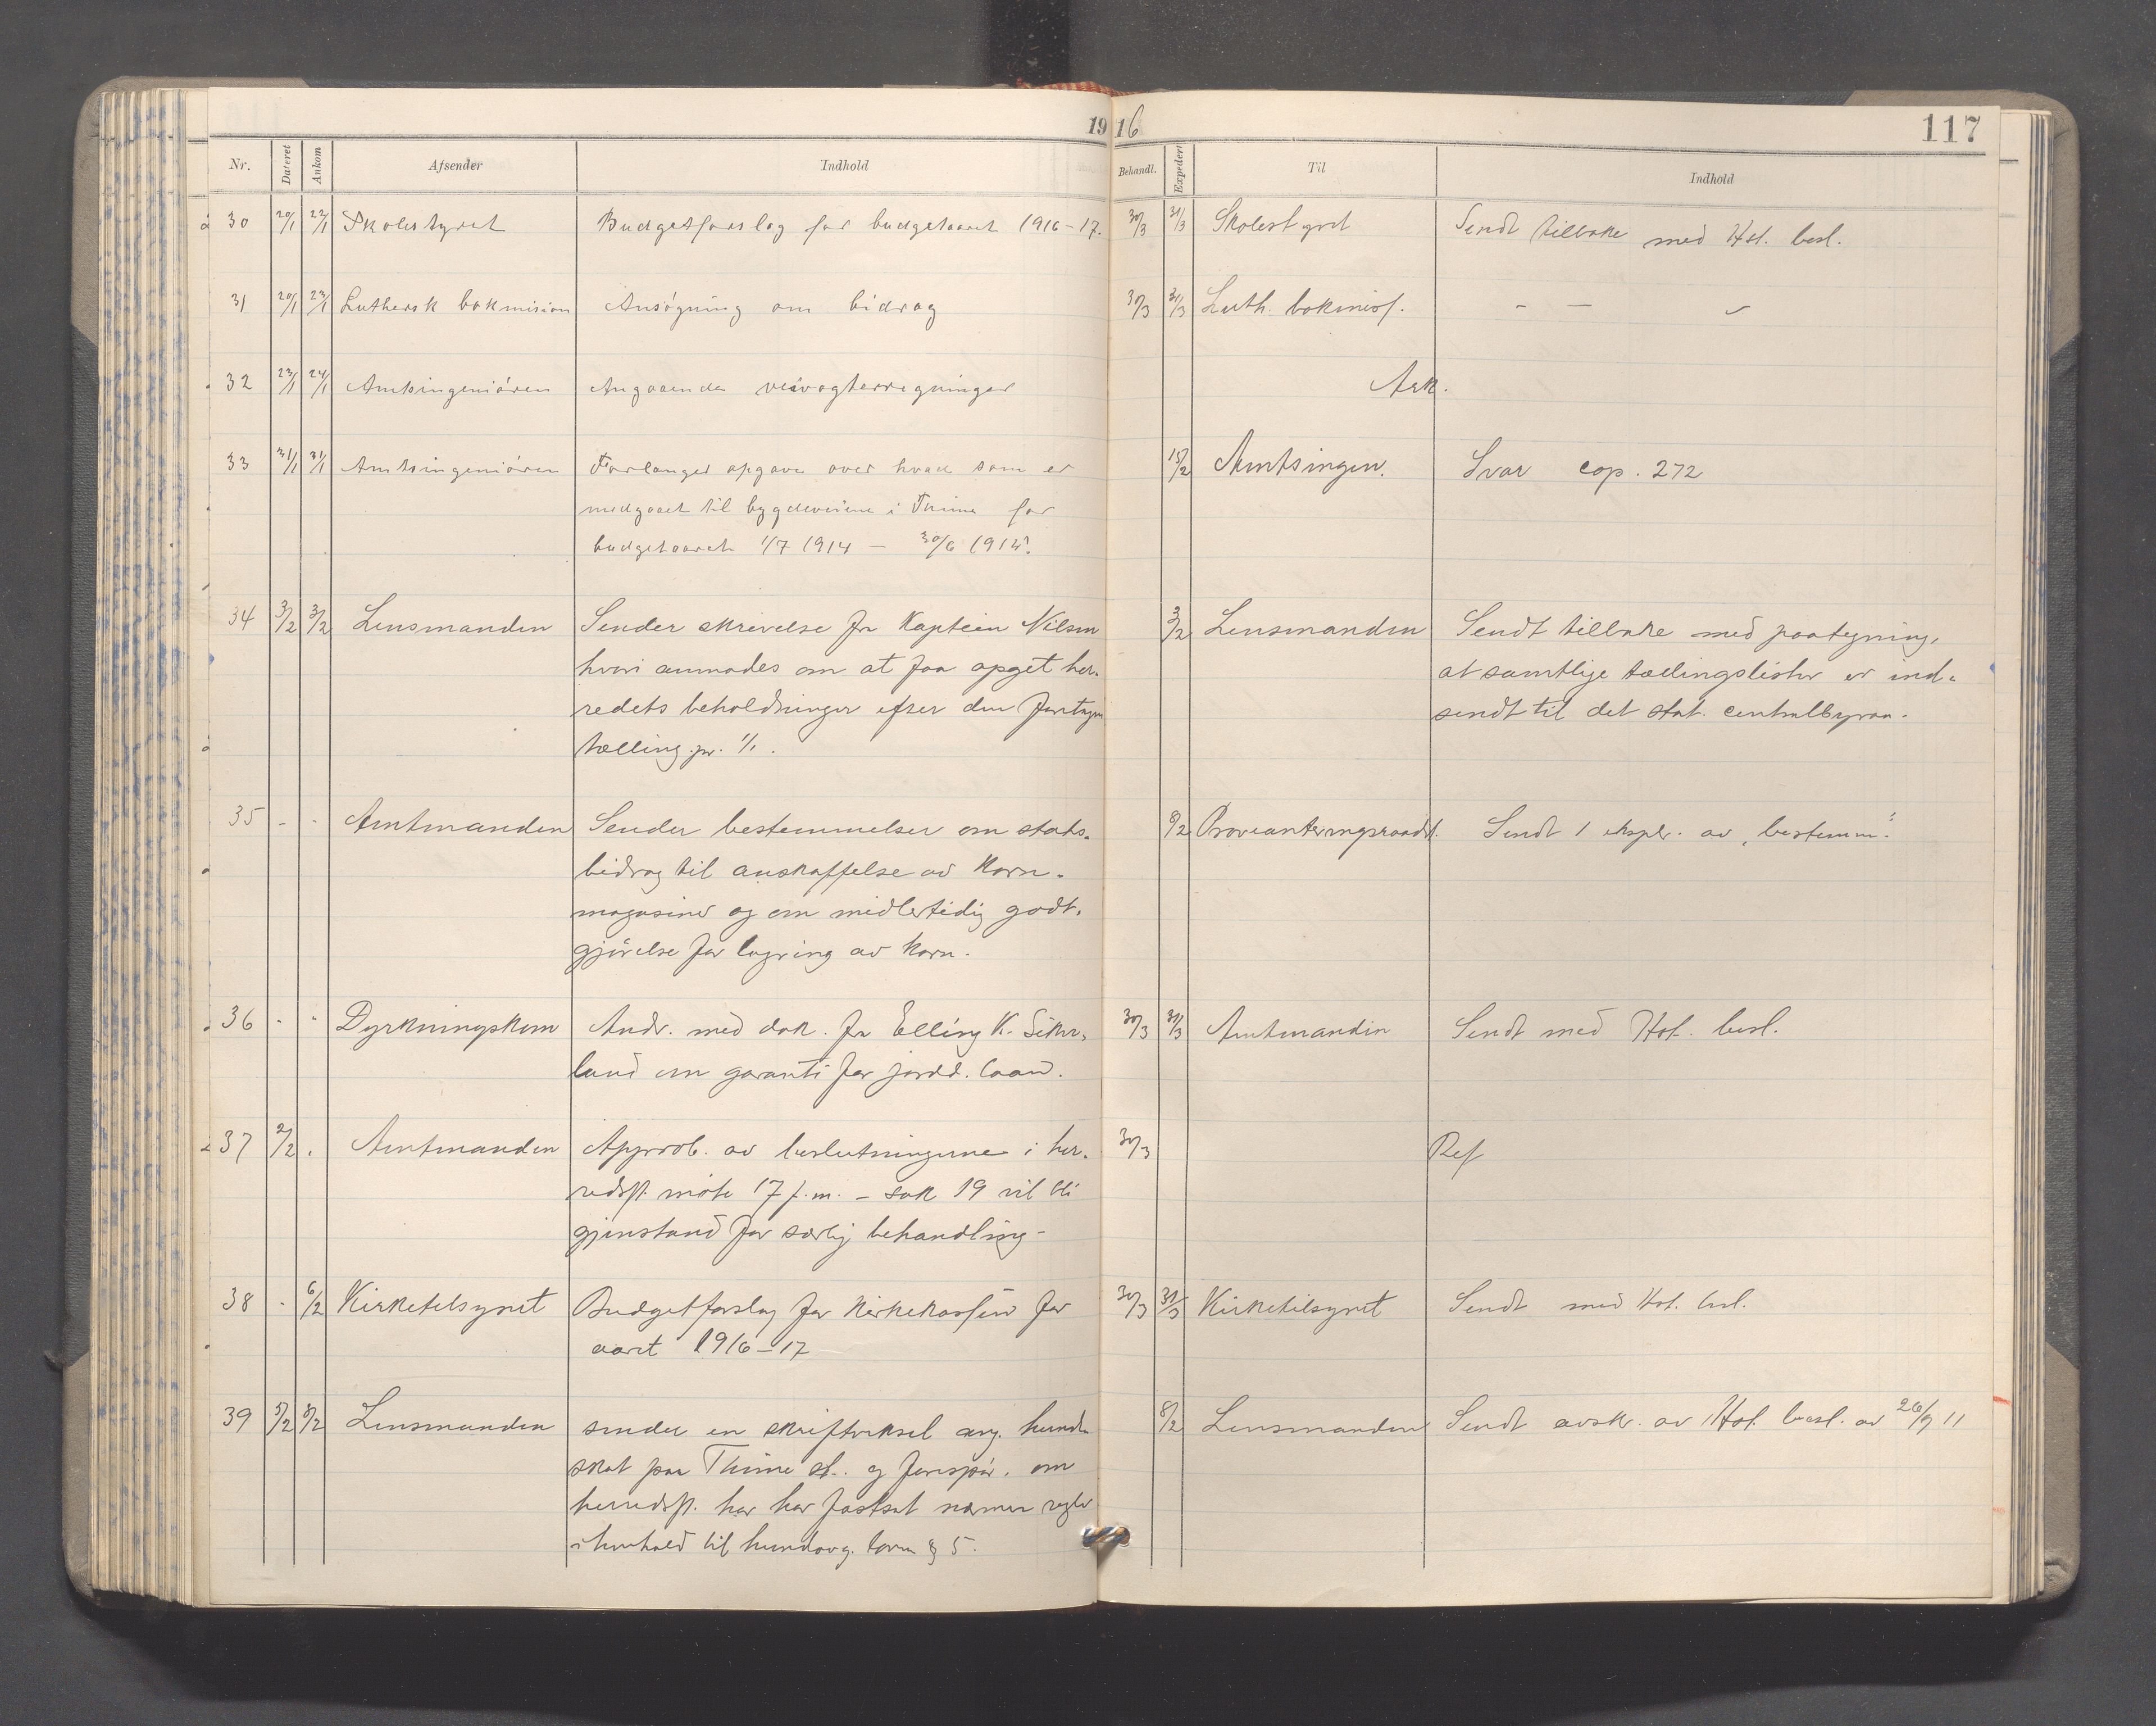 1916
117
Nr. Dateret Ankom Afsender Indhold Behandl. Expedert Til Indhold
30 20/1 22/1 Skolestyret Budgetforslag for budgetaaret 1916-17. 30/3 31/3 Skolestyret Sendt tilbake med Hst. besl.
31 20/1 23/1 Luthersk bokmision Ansögning om bidrag 30/3 31/3 Luth. bokmiss. - — -
32 23/1 24/1 Amtsingeniören Angaaende veivogterregninger Ark.
33 31/1 31/1 Amtsingeniören Forlanger opgave over hvad som er 15/2 Amtsingen. Svar cop. 272
medgaaet til bygdeveiene i Thime for
budgetaaret 1/7 1914 — 30/6 1915.
34 3/2 3/2 Lensmanden Sender skrivelse fra Kaptein Nilsen 3/2 Lensmanden Sendt tilbake med paategning,
hvori anmodes om at faa opget her- at samtlige tællingslister er ind-
redets beholdninger efter den
tælling pr. 1/1. sendt til det stat. centralbyraa.
35 - - Amtmanden Sender bestemmelser om stats- 8/2 Provianteringsraadet Sendt 1 ekspl. av "bestemm."
bidrag til anskaffelse av korn-
magasiner og om midlertidig godt-
gjörelse for lagring av korn.
36 - - Dyrkningskom Andr. med dok. fra Elling K. 30/3 31/3 Amtmanden Sendt med Hst. besl.
land om garanti for jordd. laan.
37 2/2 . Amtmanden Approb. av beslutningerne i her- 30/3 Ref
redsst. möte 17 f.m. - sak 19 vil bli
gjenstand for særlig behandling-
38 - 6/2 Kirketilsynet Budgetforslag for kirkekassen for 30/3 31/3 Kirketilsynet Sendt med Hst. besl.
aaret 1916-17
39 5/2 8/2 Lensmanden sender en skriftveksel ang. hunde 8/2 Lensmanden Sendt avskr. av Hst. besl. av 26/9 11
skat paa Thime st. og forespör. om
herredsst. her har fastsat nærmere regler
i henhold til hundeavg. loven § 5.